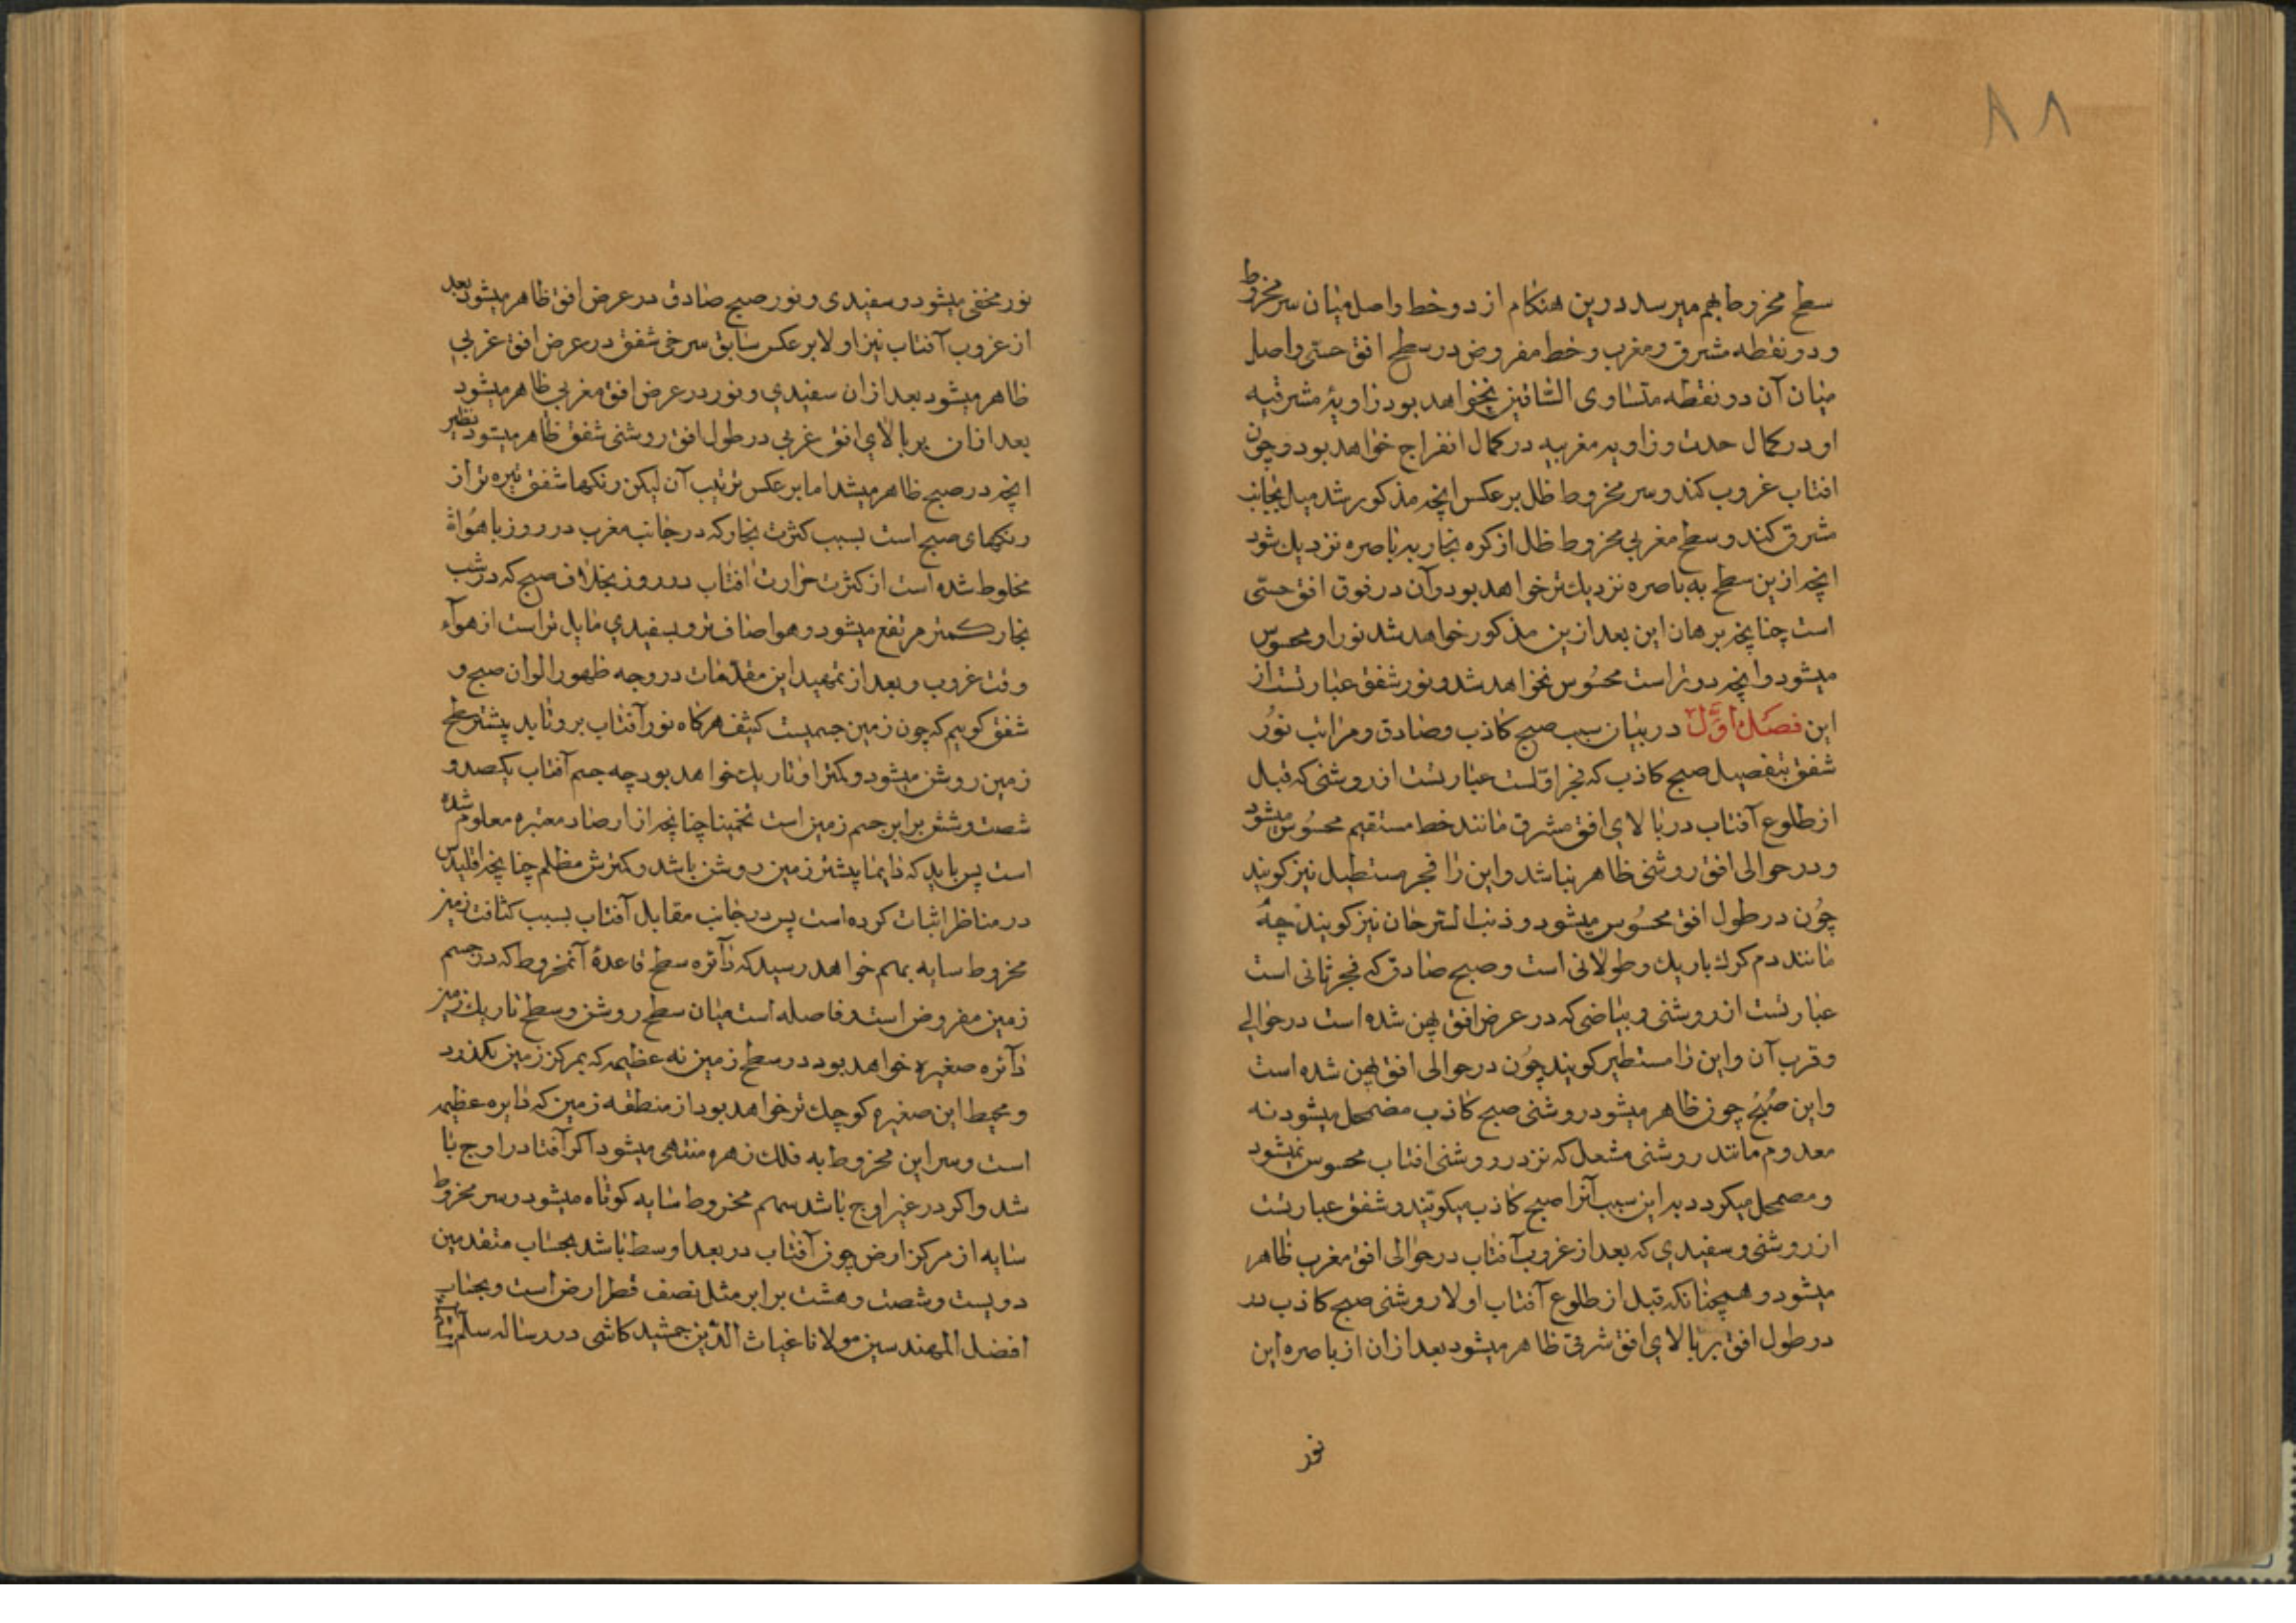 ٨٨
سطح مخروط بهم میرسد درین هنکام از دو خط واصل میان سر مخروط
و دو نقطه مشرق و مغرب و خط مفروض در سطح افق حسّی واصل
میان آن دو نقطه متساوی الساقین نخواهد بود زاویهٔ مشرقیه
او در کمال حدت و زاویه مغربیه در کمال انفراج خواهد بود و چون
افتاب غروب کند و سر مخروط ظل بر عکس انچه مذکور شد میل بجانب
مشرق کند و سطح مغربی مخروط ظل از کره بخار به باصره نزدیك شود
انچه ازین سطح به باصره نزدیك تر خواهد بود و آن در فوق افق حسّی
است چنانچه برهان این بعد ازین مذکور خواهد شد نور او محسوس
میشود و انچه دورتر است محسُوس نخواهد شد و نور شفق عبارتست از
این فصل اوّل در بیان سبب صبح کاذب و صادق و مراتب نوُر
شفق بتفصیل صبح کاذب که فجر اوّلست عبارتست از روشنی که قبل
از طلوع آفتاب در بالای افق مشرق مانند خط مستقیم محسُوس میشود
و در حوالی افق روشنی ظاهر نباشد و این را فجر مستطیل نیز کویند
چوُن در طول افق محسُوس میشود و ذنب السرحان نیز کویند چهٔ
مانند دم کرك باریك و طولانی است و صبح صادق که فجر ثانی است
عبارتست از روشنی و بیاضی که در عرض افق پهن شده است در حوالی
و قرب آن و این را مستطیر کویند چوُن در حوالی افق پهن شده است
و این صُبحُ چون ظاهر میشود روشنی صبح کاذب مضمحل میشود نه
معدوم مانند روشنی مشعل که نزد روشنی افتاب محسوس نمیشود
و مضمحل میکردد بدین سبب آنرا صبح کاذب میکویند و شفق عبارتست
از روشنی و سفیدی که بعد از غروب آفتاب در حوالی افق مغرب ظاهر
میشود و همچنانکه قبل از طلوع آفتاب اولا روشنی صبح کاذب در
در طول افق بر بالای افق شرقی ظاهر میشود بعد ازان از باصره این
نور
نور مخفی میشود و سفیدی و نور صبح صادق در عرض افق ظاهر میشود بعد
از غروب آفتاب نیز اولا بر عکس سابق سرخی شفق در عرض افق غربی
ظاهر میشود بعد ازان سفیدی و نور در عرض افق مغربی ظاهر میشود
بعد ازان بر بالای افق غربی در طول افق روشنی شفق ظاهر میشود نظیر
انچه در صبح ظاهر میشد اما بر عکس ترتیب آن لیکن رنکها شفق تیره تر از
رنکهای صبح است بسبب کثرت بخار که در جانب مغرب در روز با هواء
مخلوط شده است از کثرت حرارت افتاب در روز بخلاف صبح که در شب
بخار کمتر مرتفع میشود و هوا صاف تر و بسفیدی مایل تر است از هوآء
وقت غروب و بعد از تمهید این مقدّمات در وجه ظهور الوان صبح و
شفق کوییم که چون زمین جسمیست کثیف هرکاه نور آفتاب بر و تابد بیشتر سطح
زمین روشن میشود و کمتر او تاریك خواهد بود چه جسم آفتاب یکصد و
شصت و شش برابر جسم زمین است تخمینا چنانچه از ارصاد معتبره معلوم شده
است پس باید که دایما بیشتر زمین روشن باشد و کمترش مظلم چنانچه اقلیدس
در مناظر اثبات کرده است پس در جانب مقابل آفتاب بسبب کثافت زمین
مخروط سایه بهم خواهد رسید که دآئره سطح قاعدهٔ آنمخروط که در جسم
زمین مفروض است و فاصله است میان سطح روشن و سطح تاریك زمین
دآئره صغیره خواهد بود در سطح زمین نه عظیمه که بمرکز زمین بکذرد
و محیط این صغیره کوچك تر خواهد بود از منطقه زمین که دایره عظیمه
است و سر این مخروط به فلك زهره منتهی میشود اکر آفتا در اوج با
شد و اکر در غیر اوج باشد سهم مخروط سایه کوتاه میشود و سر مخروط
سایه از مرکز ارض چون آفتاب در بعد اوسط باشد بحساب متقدمین
دویست و شصت و هشت برابر مثل نصف قطر ارض است و بحساب
افضل المهندسین مولانا غیاث الدّین جمشید کاشی در رساله سلّم